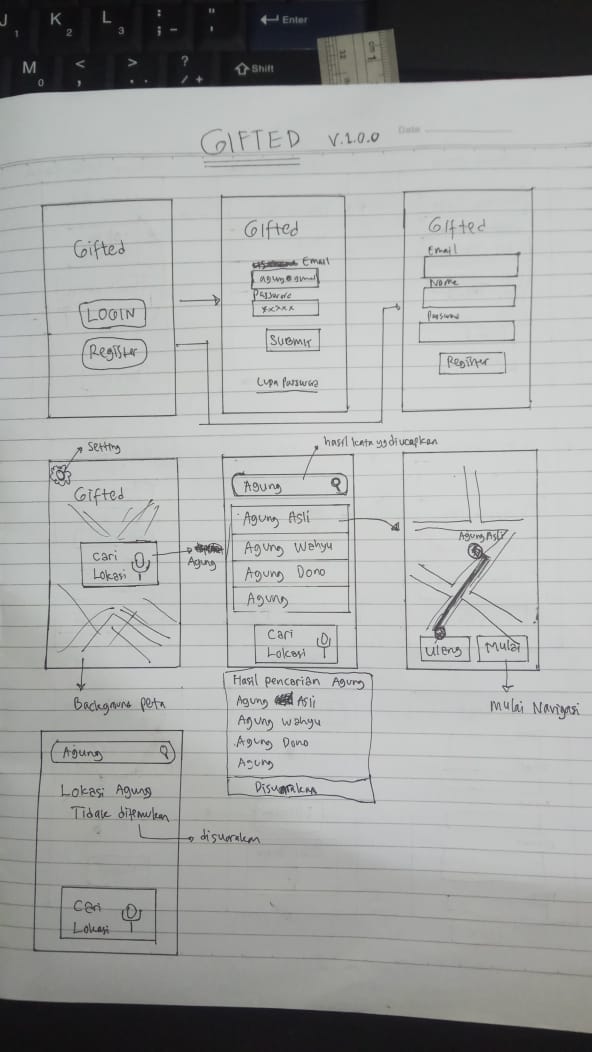 J
1
K
2
L
3
:
; -
"
'
Enter
M
0
<
,
>
.
?
/ +
Shift
cm 1
12
GIFTED V.1.0.0
Date
Gifted
LOGIN
Register
Gifted
Email
agung@gmail
Password
xxxxx
SUBMIT
Lupa Password
Gifted
Email
Nama
Password
Register
Setting
Gifted
Cari
Lokasi
Agung
Background peta
hasil kata yg diucapkan
Agung
Agung Asli
Agung Wahyu
Agung Dono
Agung
Cari
Lokasi
Hasil pencarian Agung
Agung Asli
Agung Wahyu
Agung Dono
Agung
Disuarakan
Agung Asli
Ulang
Mulai
Mulai Navigasi
Agung
Lokasi Agung
Tidak ditemukan
disuarakan
Cari
Lokasi